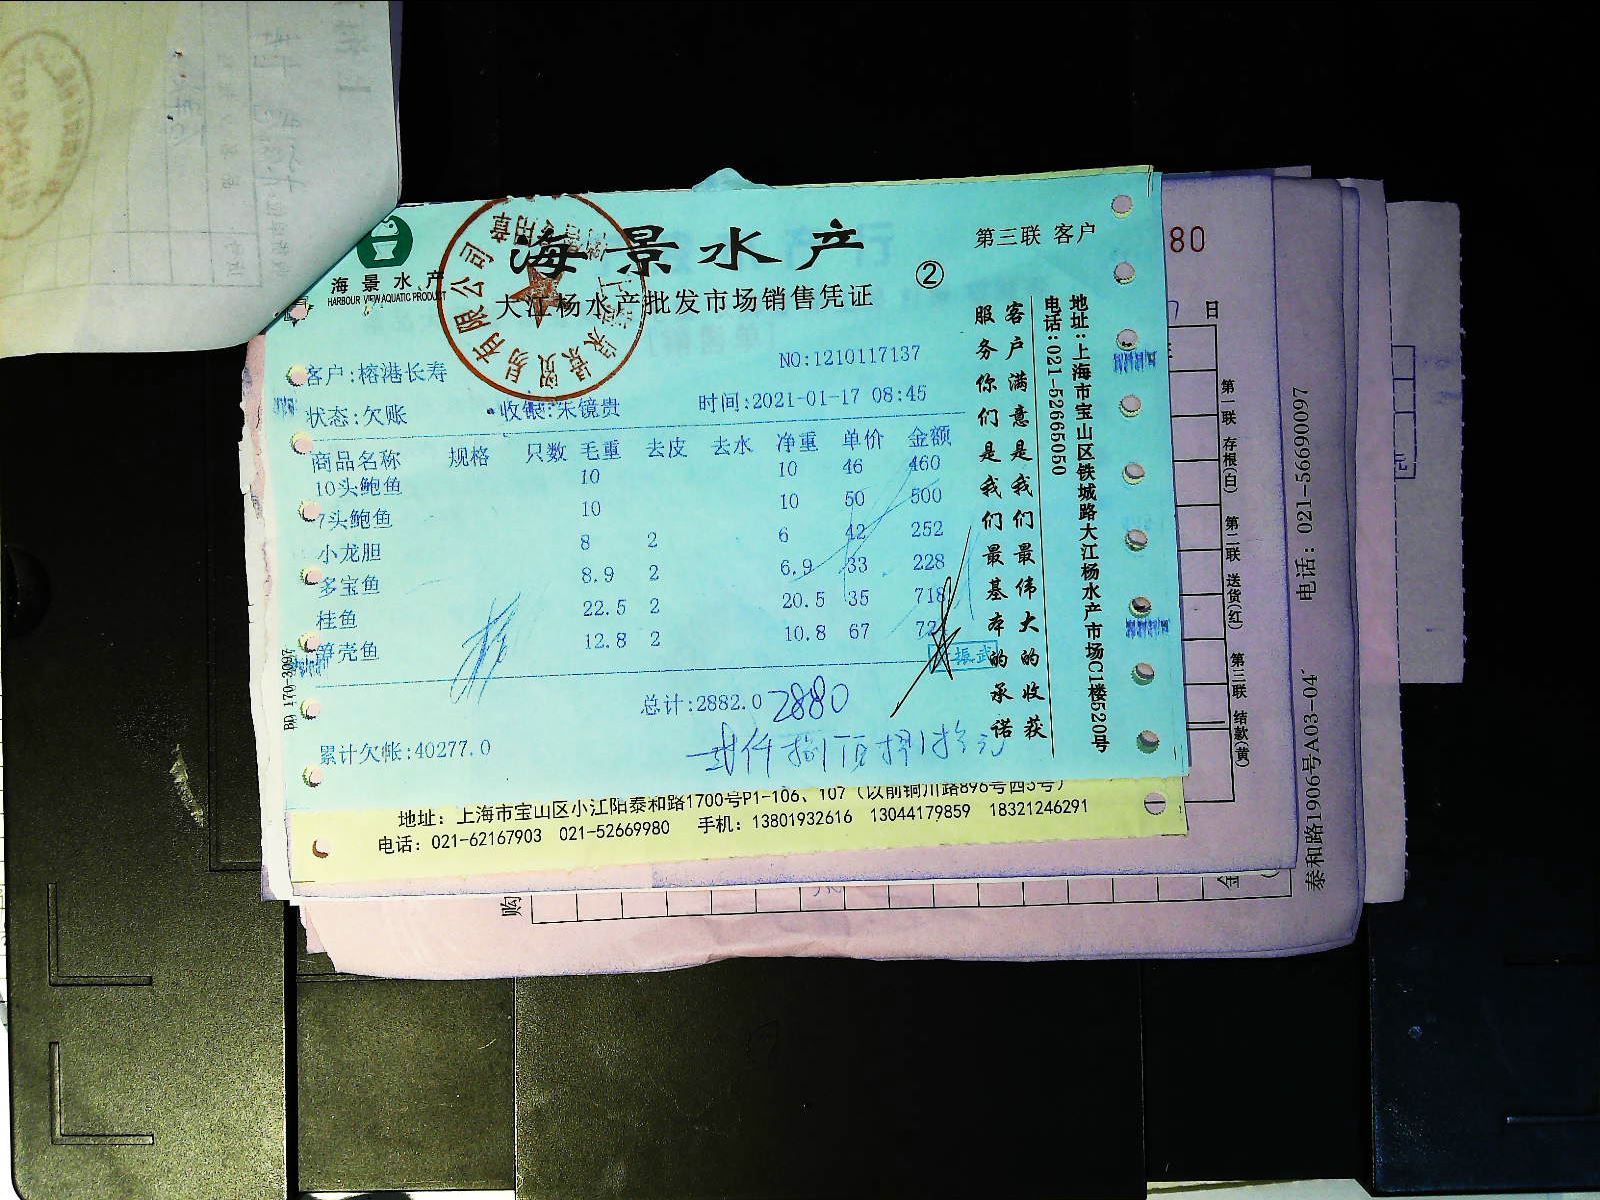 海景水产
HARBOUR VIEW AQUATIC PRODUCT
海景水产
第三联 客户
②
大江杨水产批发市场销售凭证
NO:1210117137
客户:榕港长寿
状态:欠账 收银:朱镜贵 时间:2021-01-17 08:45
商品名称 规格 只数 毛重 去皮 去水 净重 单价 金额
10头鲍鱼 10 10 46 460
7头鲍鱼 10 10 50 500
小龙胆 8 2 6 42 252
多宝鱼 8.9 2 6.9 33 228
桂鱼 22.5 2 20.5 35 718
笋壳鱼 12.8 2 10.8 67
总计:2882.0 2880
累计欠帐:40277.0
振武
客户满意是我们最伟大的收获
服务你们是我们最基本的承诺
地址:上海市宝山区铁城路大江杨水产市场C1楼520号
电话:021-52665050
有限公司
170-3097
地址：上海市宝山区小江阳泰和路1700号P1-106、107（以前铜川路896号四3号）
电话：021-62167903 021-52669980 手机：13801932616 13044179859 18321246291
80
日
第一联 存根(白)
第二联 送货(红)
第三联 结款(黄)
电话：021-56690097
泰和路1906号A03-04
元
购
金